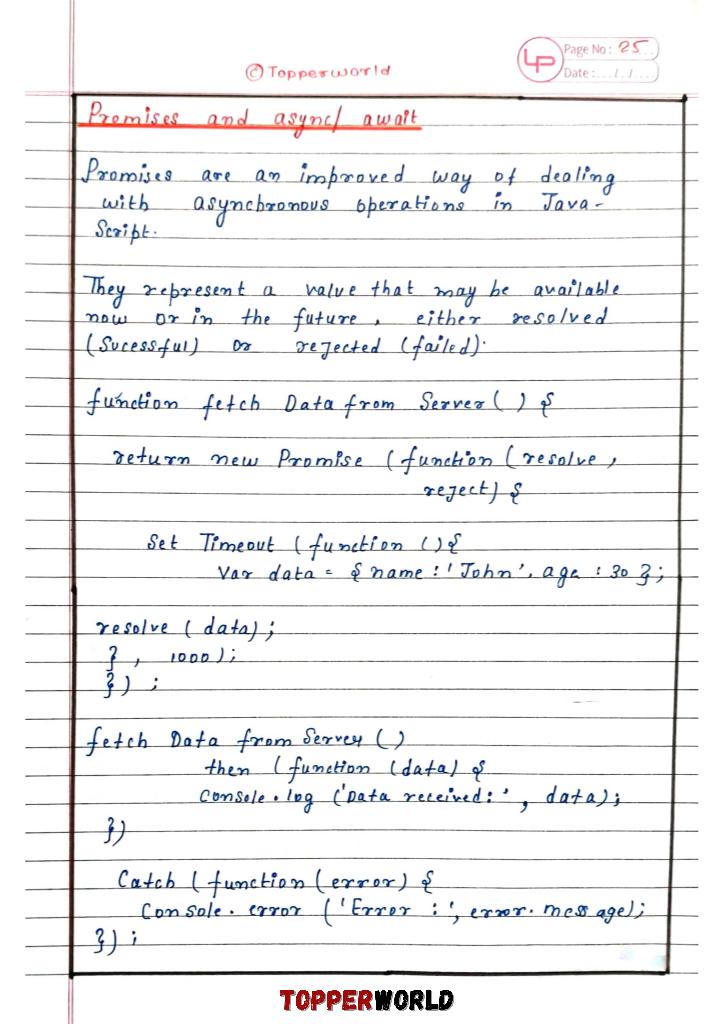 © Topperworld
LP
Page No: 25
Date: .../.../...
Promises and async/ await
Promises are an improved way of dealing
with asynchronous operations in Java-
Script.
They represent a value that may be available
now or in the future, either resolved
(Sucessful) or rejected (failed).
function fetch Data from Server ( ) {
return new Promise (function (resolve,
reject) {
Set Timeout (function () {
Var data = { name : 'John', age : 30 };
resolve ( data);
} , 1000);
}) ;
fetch Data from Server ()
then (function (data) {
Console.log ('Data received:', data);
})
Catch (function (error) {
Console.error ('Error :', error.message);
}) ;
TOPPERWORLD